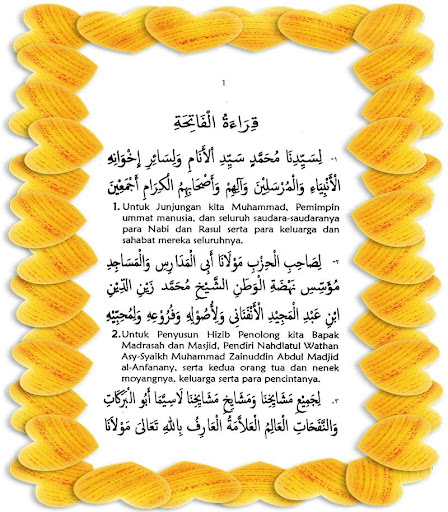 1
قِرَاءَةُ الْفَاتِحَةِ
١- لِسَيِّدِنَا مُحَمَّدٍ سَيِّدِ الْأَنَامِ وَلِسَائِرِ إِخْوَانِهِ
الْأَنْبِيَاءِ وَالْمُرْسَلِيْنَ وَآلِهِمْ وَأَصْحَابِهِمُ الْكِرَامِ أَجْمَعِيْنَ
1. Untuk Junjungan kita Muhammad, Pemimpin
ummat manusia, dan seluruh saudara-saudaranya
para Nabi dan Rasul serta para keluarga dan
sahabat mereka seluruhnya.
٢- لِصَاحِبِ الْحِزْبِ مَوْلَانَا أَبِي الْمَدَارِسِ وَالْمَسَاجِدِ
مُؤَسِّسِ نَهْضَةِ الْوَطَنِ الشَّيْخِ مُحَمَّد زَيْنِ الدِّيْنِ
ابْنِ عَبْدِ الْمَجِيْدِ الْأَنْفَنَانِي وَلِأُصُوْلِهِ وَفُرُوْعِهِ وَلِمُحِبِّيْهِ
2.Untuk Penyusun Hizib Penolong kita Bapak
Madrasah dan Masjid, Pendiri Nahdlatul Wathan
Asy-Syaikh Muhammad Zainuddin Abdul Madjid
al-Anfanany, serta kedua orang tua dan nenek
moyangnya, keluarga serta para pencintanya.
٣- لِجَمِيْعِ مَشَايِخِنَا وَمَشَايِخِ مَشَايِخِنَا لَاسِيَّمَا أَبُو الْبَرَكَاتِ
وَالنَّفَحَاتِ الْعَالِمُ الْعَلَّامَةُ الْعَارِفُ بِاللهِ تَعَالَى مَوْلَانَا